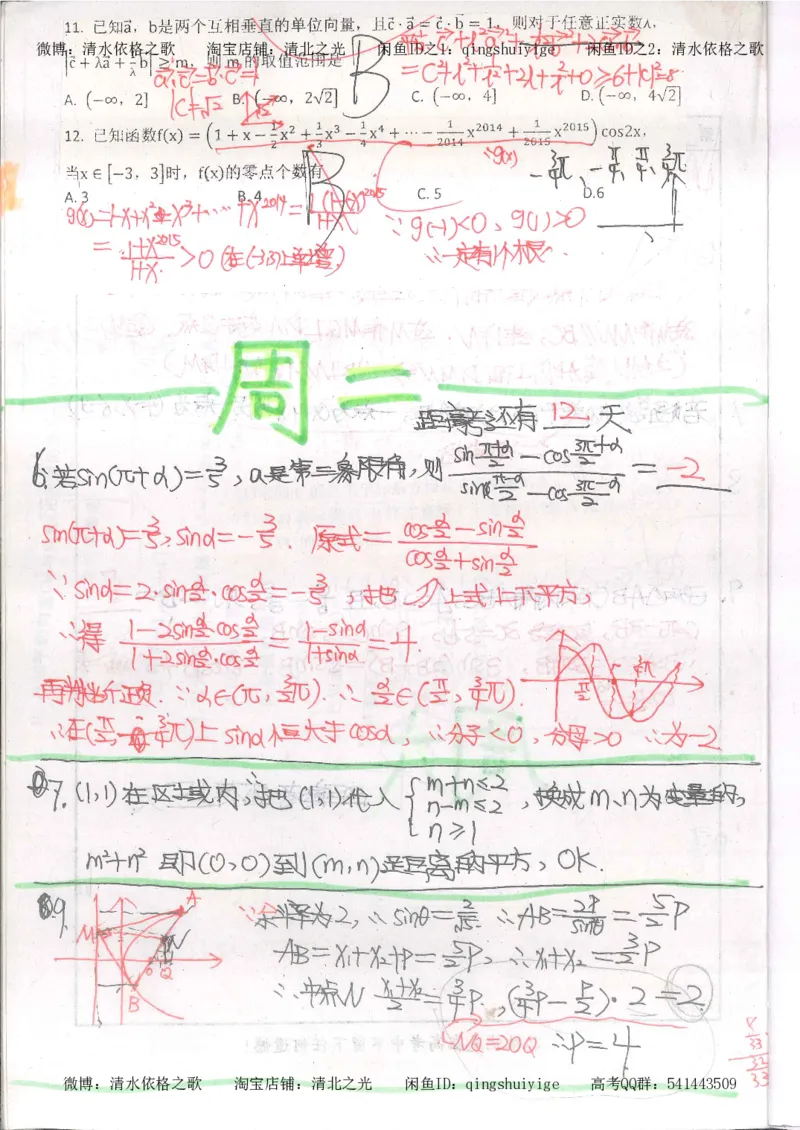 11. 已知a⃗，b⃗是两个互相垂直的单位向量，且c⃗·a⃗ = c⃗·b⃗ = 1，则对于任意正实数λ，
微博：清水依格之歌 淘宝店铺：清北之光 闲鱼ID之1：qingshuiyige 闲鱼ID之2：清水依格之歌
|c⃗ + λa⃗ + 1/λ b⃗| ≥ m，则 m的取值范围是
a⃗·c⃗=b⃗·c⃗=1
=C²+λ²+1/λ²+2λ+2/λ+0≥6+|c|²=8
A. (−∞，2] B. (−∞，2√2] C. (−∞，4] D. (−∞，4√2]
|C|=√2
B
12. 已知函数f(x) = (1 + x − 1/2 x² + 1/3 x³ − 1/4 x⁴ + ⋯ − 1/2014 x²⁰¹⁴ + 1/2015 x²⁰¹⁵) cos2x，
∵g(x)
当x ∈ [−3，3]时，f(x)的零点个数有
B
−3/4π、−π/4、π/4、3/4π
A. 3 B. 4 C. 5 D.6
g'(x)=1-x+x²-x³+…+x²⁰¹⁴=
∵g(-1)<0，g(1)>0
=(1+x²⁰¹⁵)/(1+x)>0（在(-3,3)上单增）
∴一定有1个根
周二
距高考还有 12 天
6. 若sin(π+α)=3/5，α是第三象限角，则 (sin (π+α)/2 − cos (3π+α)/2)/(sin (π-α)/2 − cos (3π-α)/2) = -2
sin(π+α)=3/5，sinα=-3/5. 原式=(cos α/2 − sin α/2)/(cos α/2 + sin α/2)
∵sinα=2·sin α/2·cos α/2=-3/5，把上式上下平方，
∴得 (1-2sin α/2 cos α/2)/(1+2sin α/2·cos α/2)=(1-sinα)/(1+sinα)=4.
再判断正负. ∵α∈(π, 3/2π). ∴ α/2∈(π/2, 3/4π).
∴在(π/2, 3/4π)上 sinα恒大于cosα，∴分子<0，分母>0 ∴为-2
7. (1,1)在区域内，∴把(1,1)代入 { m+n≤2 n-m≤2 n≥1，换成m、n为变量的，
m²+n² 即(0,0)到(m,n)距离的平方，OK.
9.
斜率为2，∴sinθ=2/√5 ∴AB=2P/sin²θ=5/2P
AB=x₁+x₂+p=5/2P，∴x₁+x₂=3/2P
∴中点N (x₁+x₂)/2=3/4P，(3/4P−P/2)·2=2
NQ=2OQ ∴P=4
微博：清水依格之歌 淘宝店铺：清北之光 闲鱼ID：qingshuiyige 高考QQ群：541443509